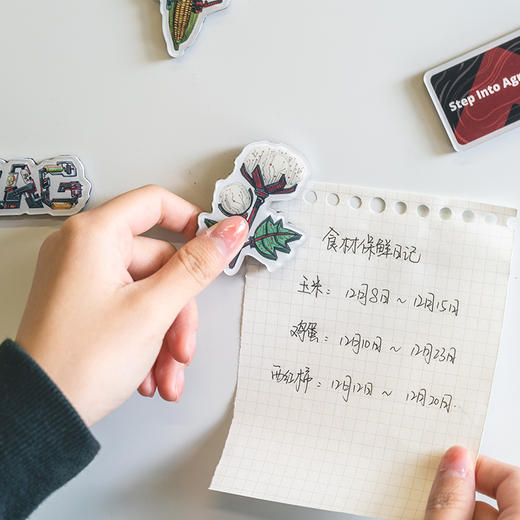 Step Into Agr
AG
食材保鲜日记
玉米：12月8日 ~ 12月15日
鸡蛋：12月10日 ~ 12月23日
西红柿：12月12日 ~ 12月20日.